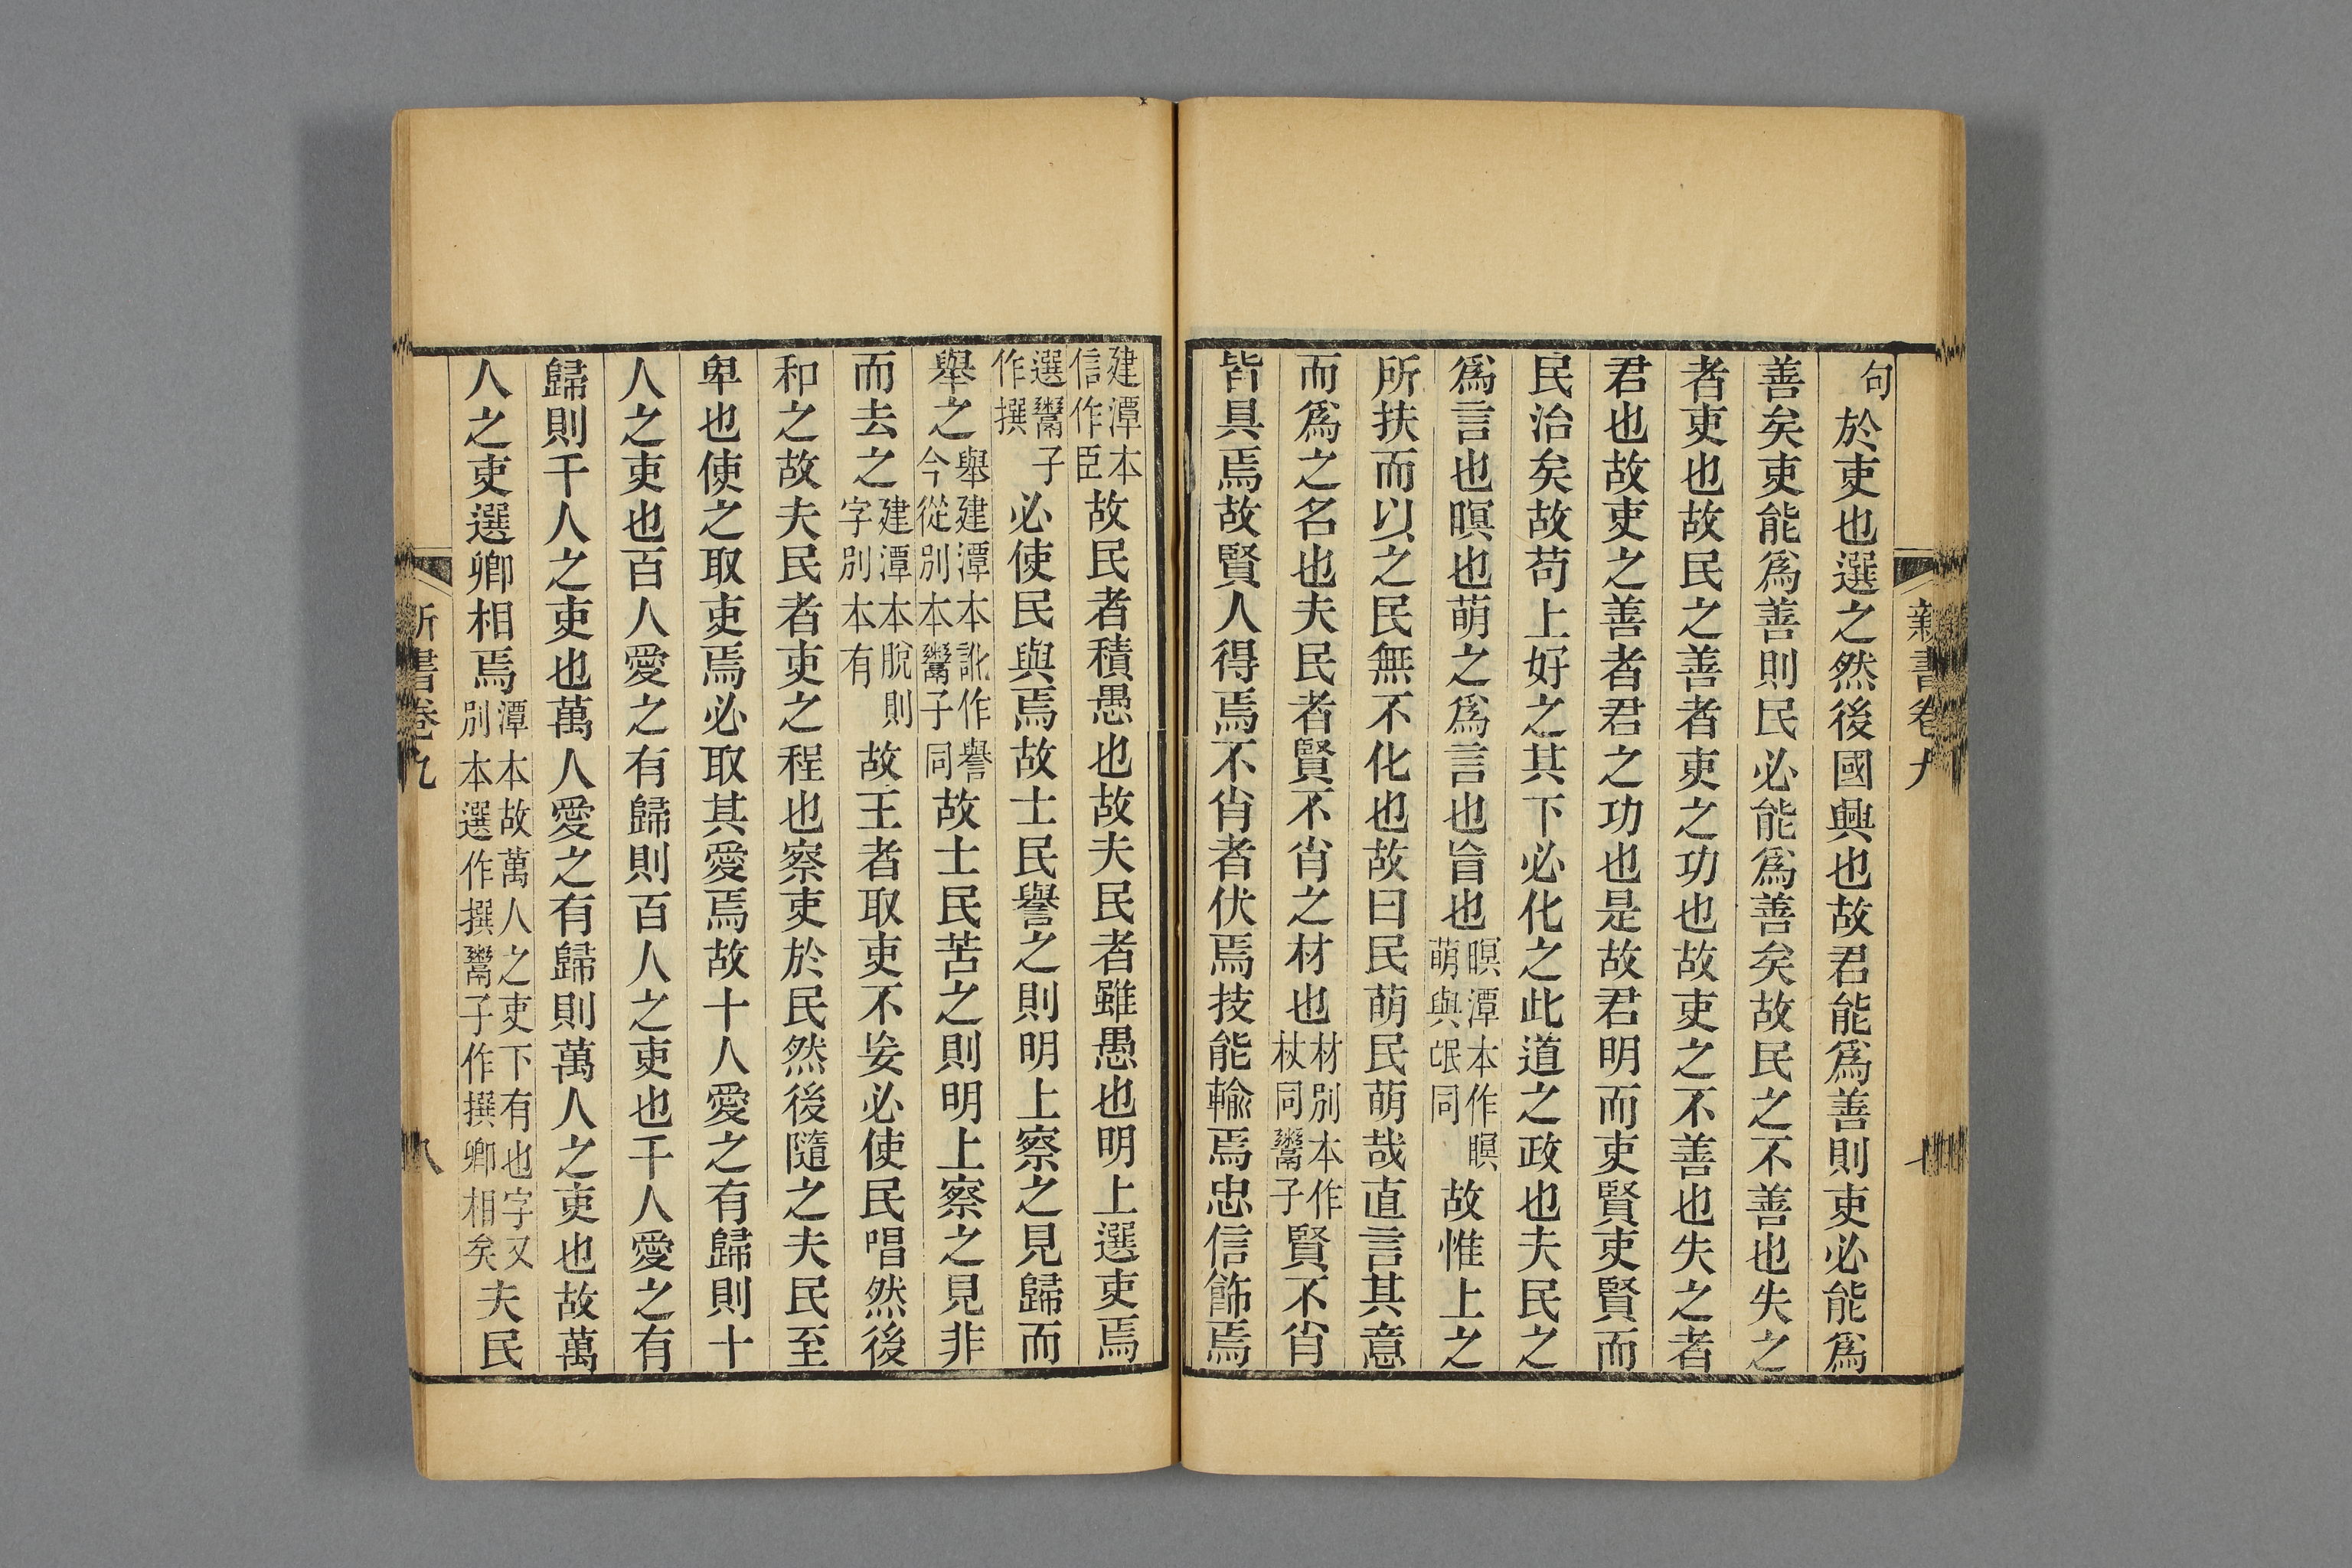 新書卷九
七
句於吏也選之然後國興也故君能爲善則吏必能爲
善矣吏能爲善則民必能爲善矣故民之不善也失之
者吏也故民之善者吏之功也故吏之不善也失之者
君也故吏之善者君之功也是故君明而吏賢吏賢而
民治矣故苟上好之其下必化之此道之政也夫民之
爲言也暝也萌之爲言也盲也暝潭本作瞑萌與氓同故惟上之
所扶而以之民無不化也故曰民萌民萌哉直言其意
而爲之名也夫民者賢不肖之材也材別本作杖同鬻子賢不肖
皆具焉故賢人得焉不肖者伏焉技能輸焉忠信飾焉
建潭本信作臣故民者積愚也故夫民者雖愚也明上選吏焉
選鬻子作撰必使民與焉故士民譽之則明上察之見歸而
舉之舉建潭本訛作譽今從別本鬻子同故士民苦之則明上察之見非
而去之建潭本脫則字別本有故王者取吏不妄必使民唱然後
和之故夫民者吏之程也察吏於民然後隨之夫民至
卑也使之取吏焉必取其愛焉故十人愛之有歸則十
人之吏也百人愛之有歸則百人之吏也千人愛之有
歸則千人之吏也萬人愛之有歸則萬人之吏也故萬
人之吏選卿相焉潭本故萬人之吏下有也字又別本選作撰鬻子作撰卿相矣夫民
新書卷九
八